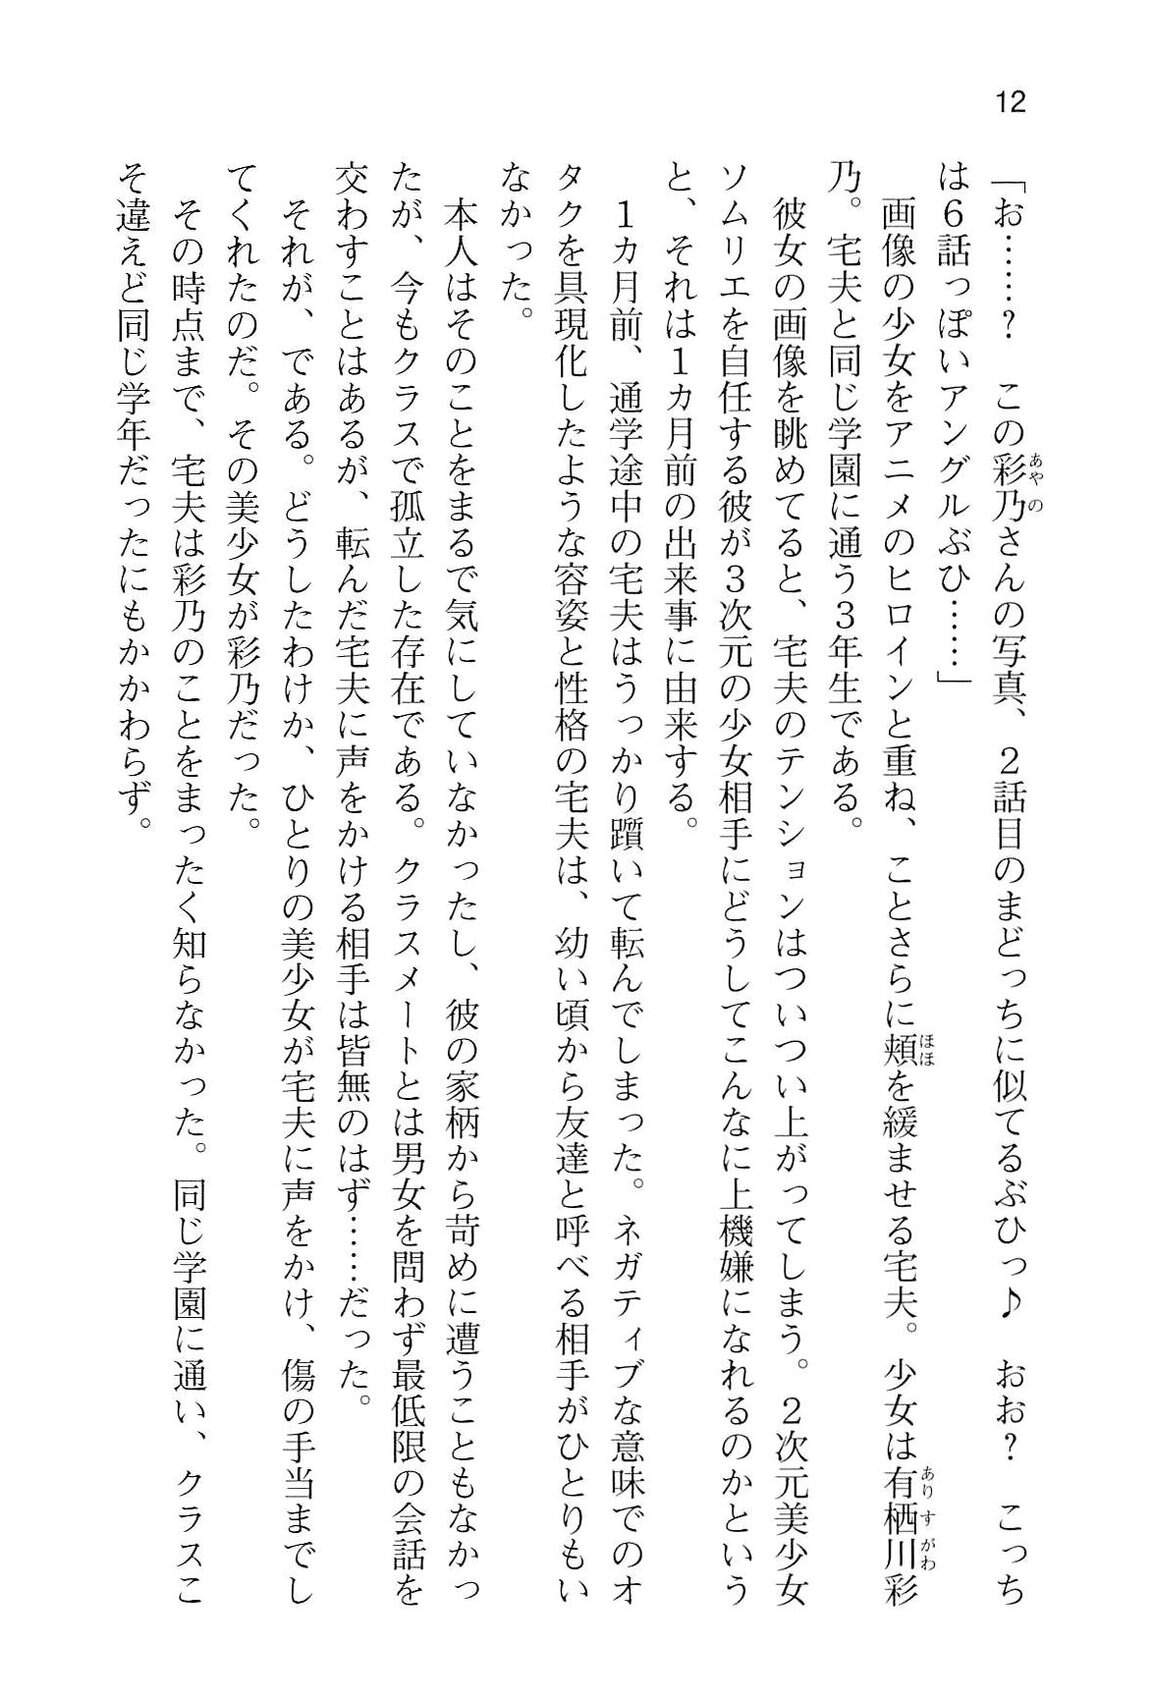 12
「お……？　この彩乃さんの写真、２話目のまどっちに似てるぶひっ♪　おお？　こっち
は６話っぽいアングルぶひ……」
　画像の少女をアニメのヒロインと重ね、ことさらに頬を緩ませる宅夫。少女は有栖川彩
乃。宅夫と同じ学園に通う３年生である。
　彼女の画像を眺めてると、宅夫のテンションはついつい上がってしまう。２次元美少女
ソムリエを自任する彼が３次元の少女相手にどうしてこんなに上機嫌になれるのかという
と、それは１カ月前の出来事に由来する。
　１カ月前、通学途中の宅夫はうっかり躓いて転んでしまった。ネガティブな意味でのオ
タクを具現化したような容姿と性格の宅夫は、幼い頃から友達と呼べる相手がひとりもい
なかった。
　本人はそのことをまるで気にしていなかったし、彼の家柄から苛めに遭うこともなかっ
たが、今もクラスで孤立した存在である。クラスメートとは男女を問わず最低限の会話を
交わすことはあるが、転んだ宅夫に声をかける相手は皆無のはず……だった。
　それが、である。どうしたわけか、ひとりの美少女が宅夫に声をかけ、傷の手当までし
てくれたのだ。その美少女が彩乃だった。
　その時点まで、宅夫は彩乃のことをまったく知らなかった。同じ学園に通い、クラスこ
そ違えど同じ学年だったにもかかわらず。